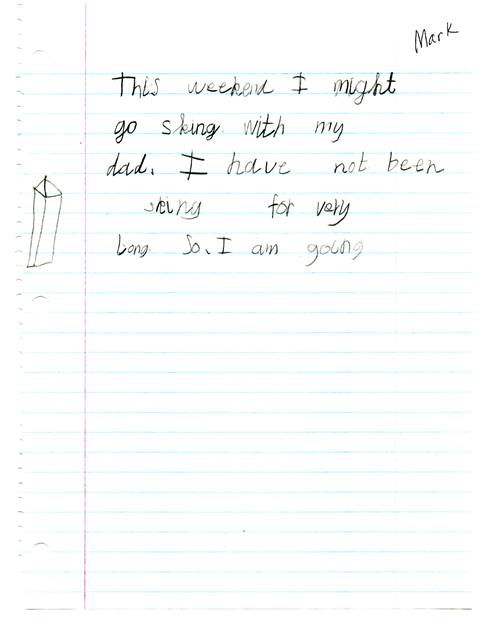 Mark
This weekend I might
go sking with my
dad. I have not been
sking for very
Long So. I am going